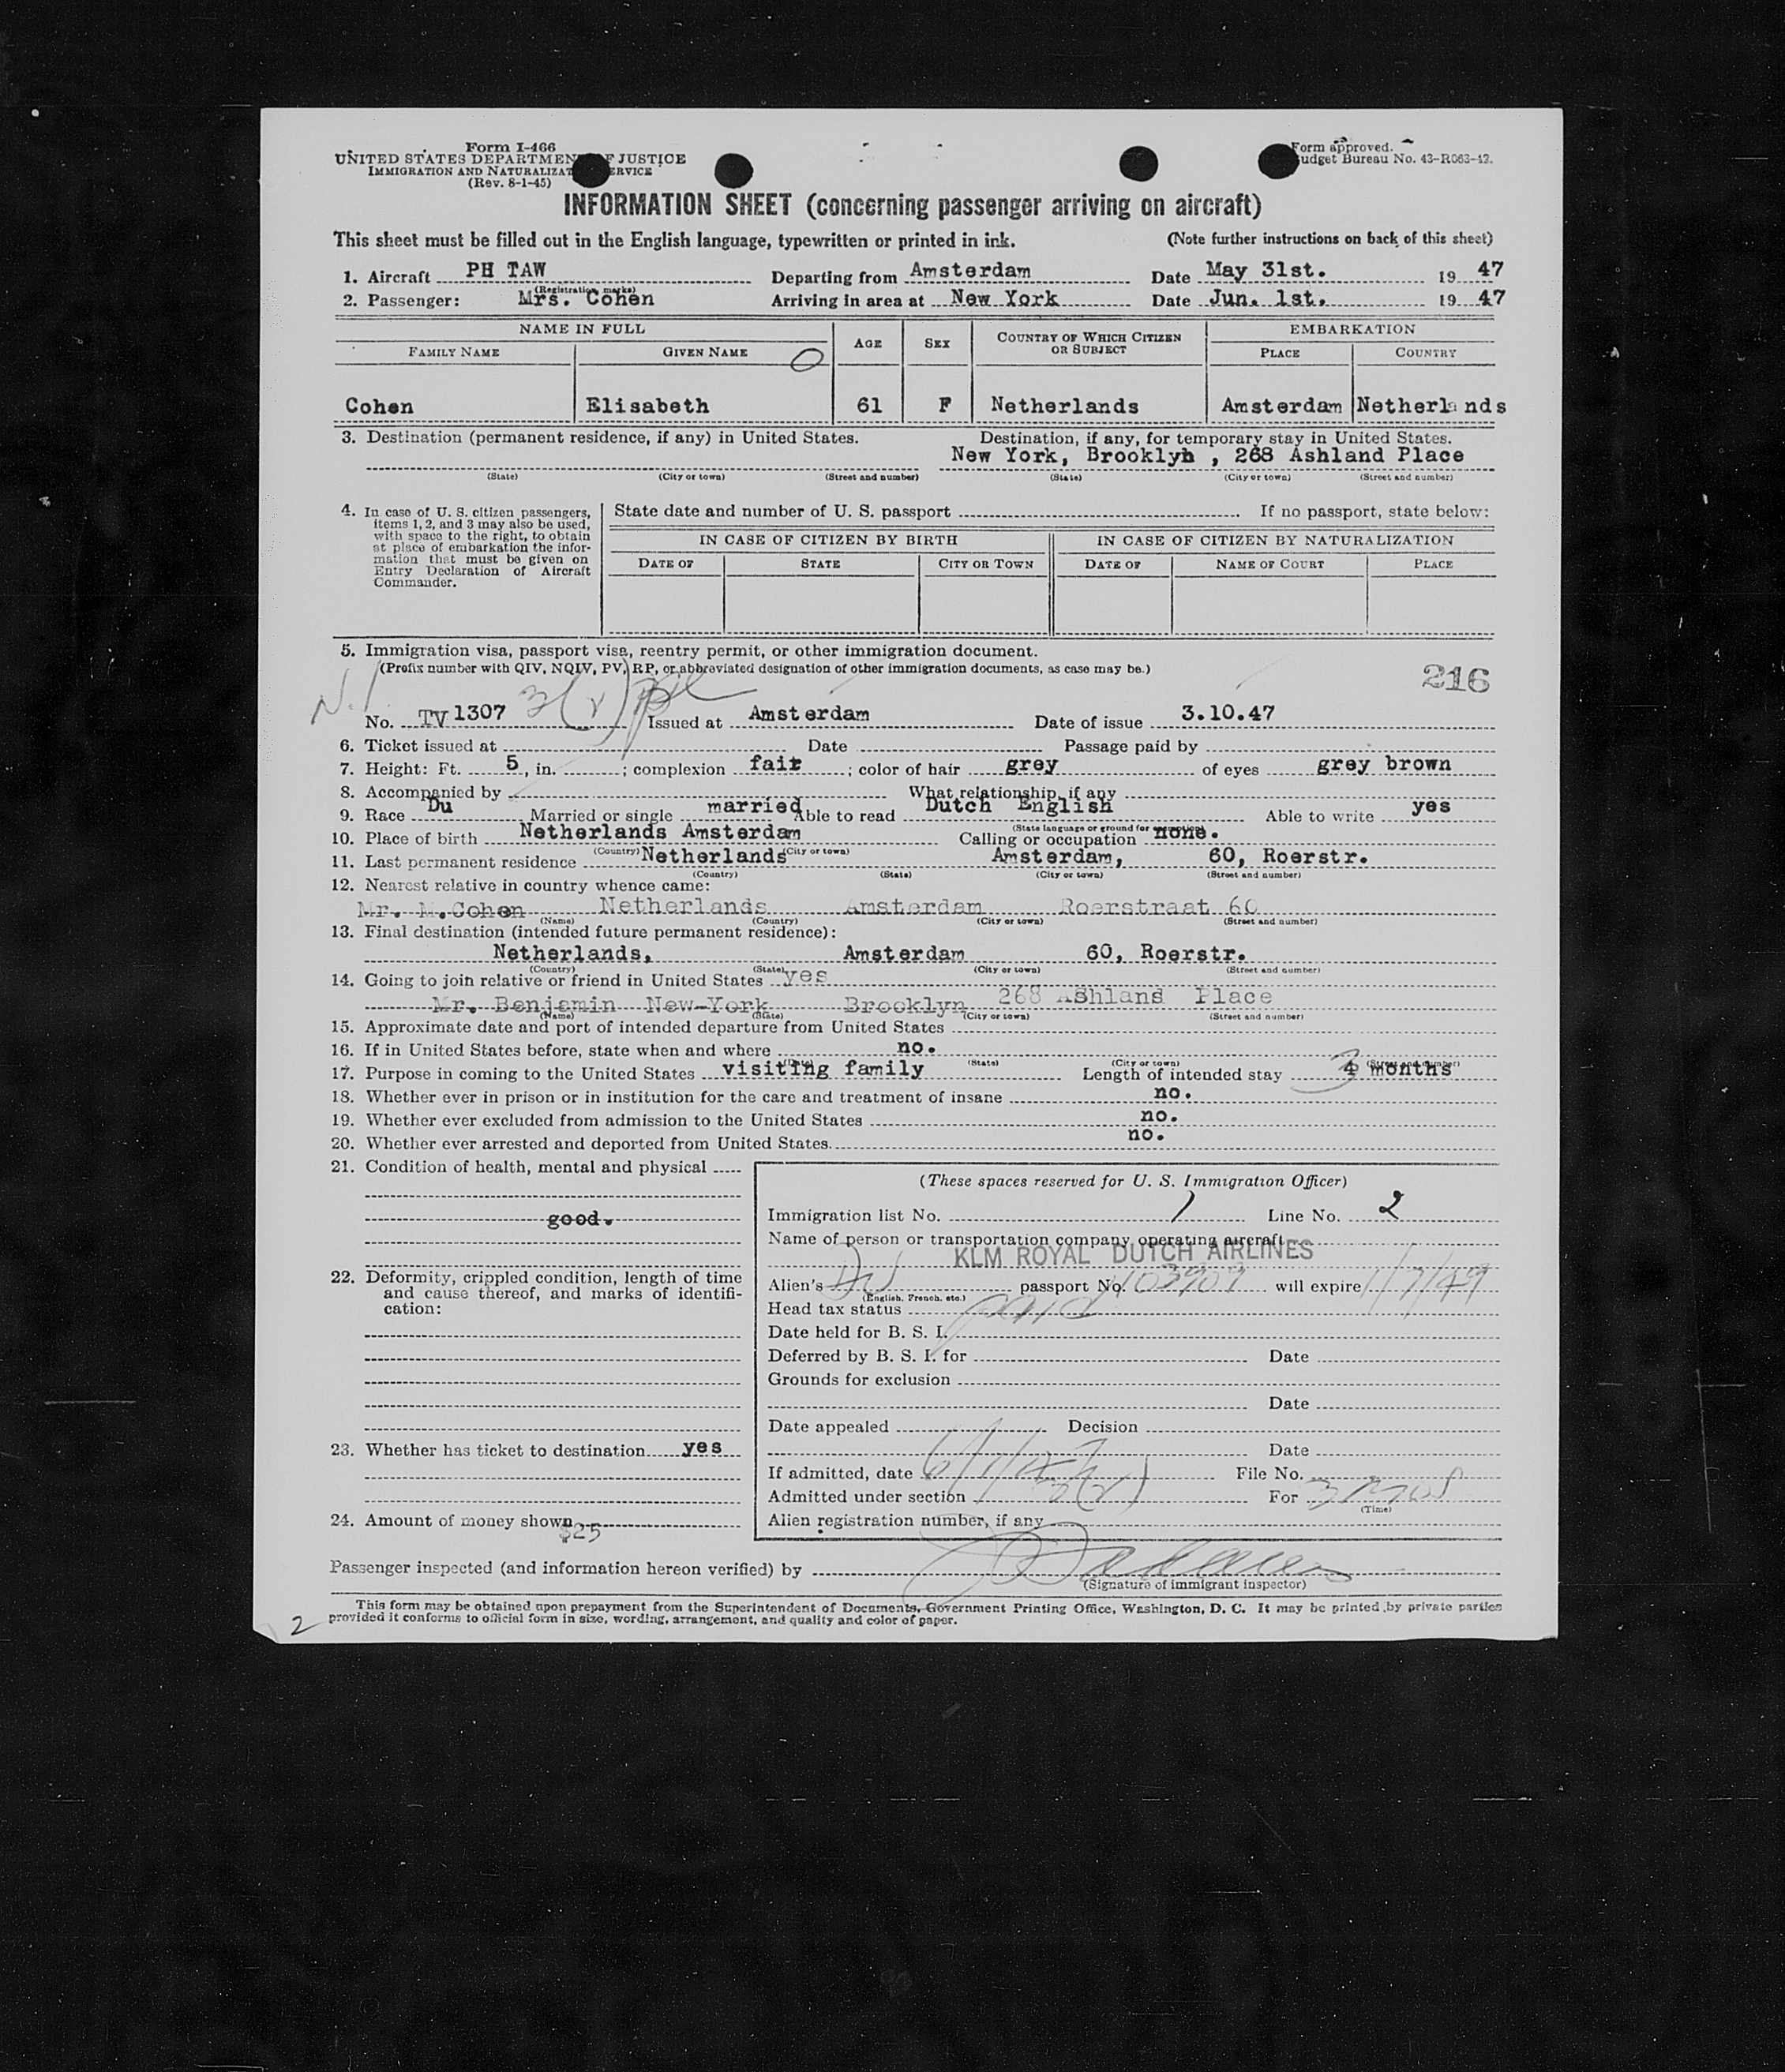 Form I-466
UNITED STATES DEPARTMENT OF JUSTICE
IMMIGRATION AND NATURALIZATION SERVICE
(Rev. 8-1-45)
Form approved.
Budget Bureau No. 43-R063-42.
INFORMATION SHEET (concerning passenger arriving on aircraft)
This sheet must be filled out in the English language, typewritten or printed in ink. (Note further instructions on back of this sheet)
1. Aircraft PH TAW Departing from Amsterdam Date May 31st. 19 47
(Registration marks)
2. Passenger: Mrs. Cohen Arriving in area at New York Date Jun. 1st. 19 47
NAME IN FULL AGE SEX COUNTRY OF WHICH CITIZEN OR SUBJECT EMBARKATION
FAMILY NAME GIVEN NAME PLACE COUNTRY
Cohen Elisabeth 61 F Netherlands Amsterdam Netherlands
3. Destination (permanent residence, if any) in United States. Destination, if any, for temporary stay in United States.
New York, Brooklyn , 268 Ashland Place
(State) (City or town) (Street and number) (State) (City or town) (Street and number)
4. In case of U. S. citizen passengers, items 1, 2, and 3 may also be used, with space to the right, to obtain at place of embarkation the information that must be given on Entry Declaration of Aircraft Commander.
State date and number of U. S. passport If no passport, state below:
IN CASE OF CITIZEN BY BIRTH IN CASE OF CITIZEN BY NATURALIZATION
DATE OF STATE CITY OR TOWN DATE OF NAME OF COURT PLACE
5. Immigration visa, passport visa, reentry permit, or other immigration document.
(Prefix number with QIV, NQIV, PV, RP, or abbreviated designation of other immigration documents, as case may be.)
216
No. TV 1307 3(2) Issued at Amsterdam Date of issue 3.10.47
6. Ticket issued at Date Passage paid by
7. Height: Ft. 5, in. ; complexion fair ; color of hair grey of eyes grey brown
8. Accompanied by What relationship, if any
9. Race Du Married or single married Able to read Dutch English Able to write yes
(State language or ground for exemption)
10. Place of birth Netherlands Amsterdam Calling or occupation none.
(Country) (City or town)
11. Last permanent residence Netherlands Amsterdam, 60, Roerstr.
(Country) (State) (City or town) (Street and number)
12. Nearest relative in country whence came:
Mr. M.Cohen Netherlands Amsterdam Roerstraat 60
(Name) (Country) (City or town) (Street and number)
13. Final destination (intended future permanent residence):
Netherlands, Amsterdam 60, Roerstr.
(Country) (State) (City or town) (Street and number)
14. Going to join relative or friend in United States yes
Mr. Benjamin New-York Brooklyn 268 Ashland Place
(Name) (State) (City or town) (Street and number)
15. Approximate date and port of intended departure from United States
16. If in United States before, state when and where no.
(Date) (State) (City or town) (Street and number)
17. Purpose in coming to the United States visiting family Length of intended stay 3 4 months
18. Whether ever in prison or in institution for the care and treatment of insane no.
19. Whether ever excluded from admission to the United States no.
20. Whether ever arrested and deported from United States. no.
21. Condition of health, mental and physical
good.
22. Deformity, crippled condition, length of time and cause thereof, and marks of identification:
23. Whether has ticket to destination yes
24. Amount of money shown $25
(These spaces reserved for U. S. Immigration Officer)
Immigration list No. 1 Line No. 2
Name of person or transportation company operating aircraft
KLM ROYAL DUTCH AIRLINES
Alien's Du passport No. 103909 will expire 1/7/49
(English, French, etc.)
Head tax status paid
Date held for B. S. I.
Deferred by B. S. I. for Date
Grounds for exclusion
Date
Date appealed Decision
Date
If admitted, date 6/1/47 File No.
Admitted under section 3(2) For 3 mos
(Time)
Alien registration number, if any
Passenger inspected (and information hereon verified) by
(Signature of immigrant inspector)
This form may be obtained upon prepayment from the Superintendent of Documents, Government Printing Office, Washington, D. C. It may be printed by private parties
provided it conforms to official form in size, wording, arrangement, and quality and color of paper.
2